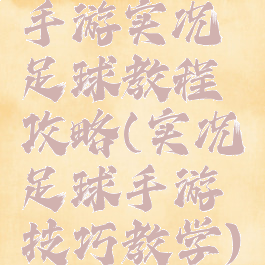 手游实况
足球教程
攻略(实况
足球手游
技巧教学)